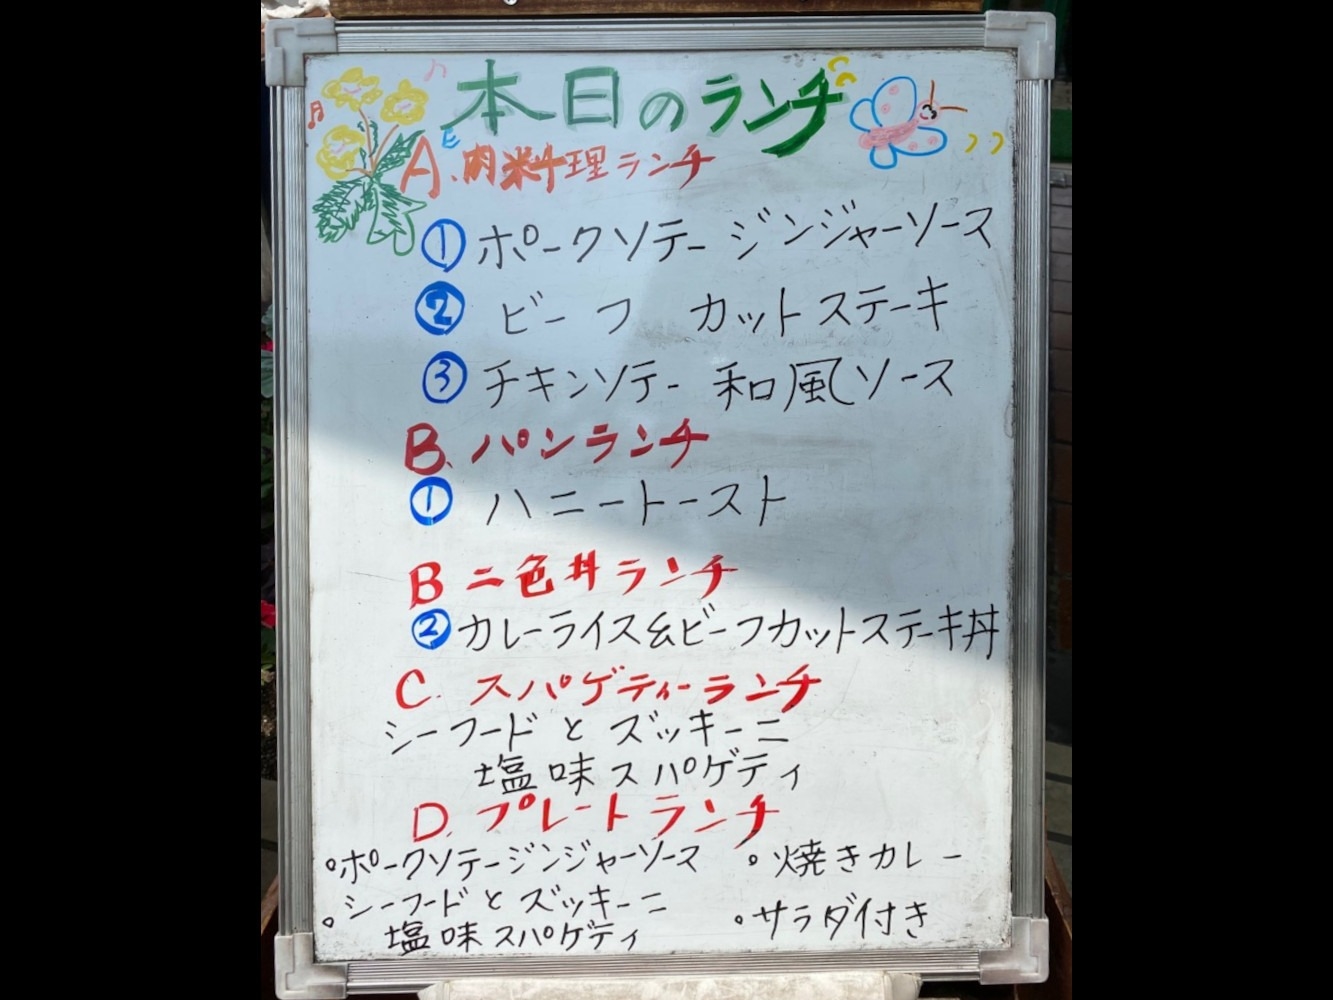 本日のランチ
A.肉料理ランチ
① ポークソテー ジンジャーソース
② ビーフ カットステーキ
③ チキンソテー 和風ソース
B.パンランチ
① ハニートースト
B 二色丼ランチ
② カレーライス&ビーフカットステーキ丼
C.スパゲティーランチ
シーフードとズッキーニ
塩味スパゲティ
D.プレートランチ
°ポークソテージンジャーソース
°シーフードとズッキーニ
塩味スパゲティ
°焼きカレー
°サラダ付き